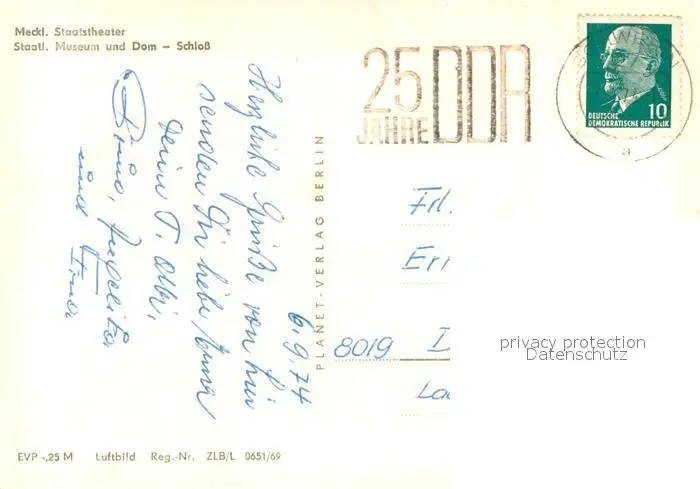 Meckl. Staatstheater
Staatl. Museum und Dom – Schloß
25
JAHRE DDR
10
DEUTSCHE
DEMOKRATISCHE REPUBLIK
a
6.9.74
Herzliche Grüße von hier
senden Dir liebe Erna
Deine T.
und
PLANET-VERLAG BERLIN
Frl.
Er
8019 D
privacy protection
Datenschutz
EVP -,25 M Luftbild Reg.-Nr. ZLB/L 0651/69